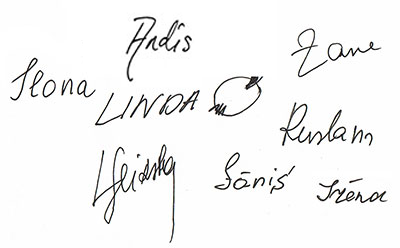 Andis
Zane
Ilona
LINDA
Ruslans
Jānis
Irēna